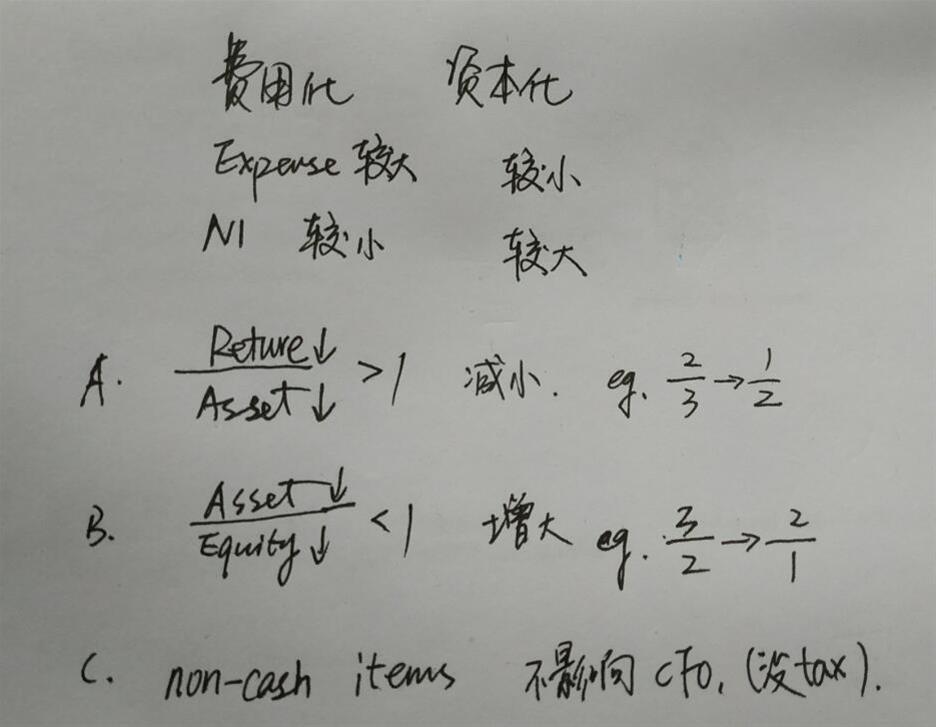 费用化 资本化
Expense 较大 较小
NI 较小 较大
A. Reture↓ / Asset↓ > 1 减小. eg. 2/3 → 1/2
B. Asset↓ / Equity↓ < 1 增大 eg. 3/2 → 2/1
C. non-cash items 不影响 CFO, (没tax).